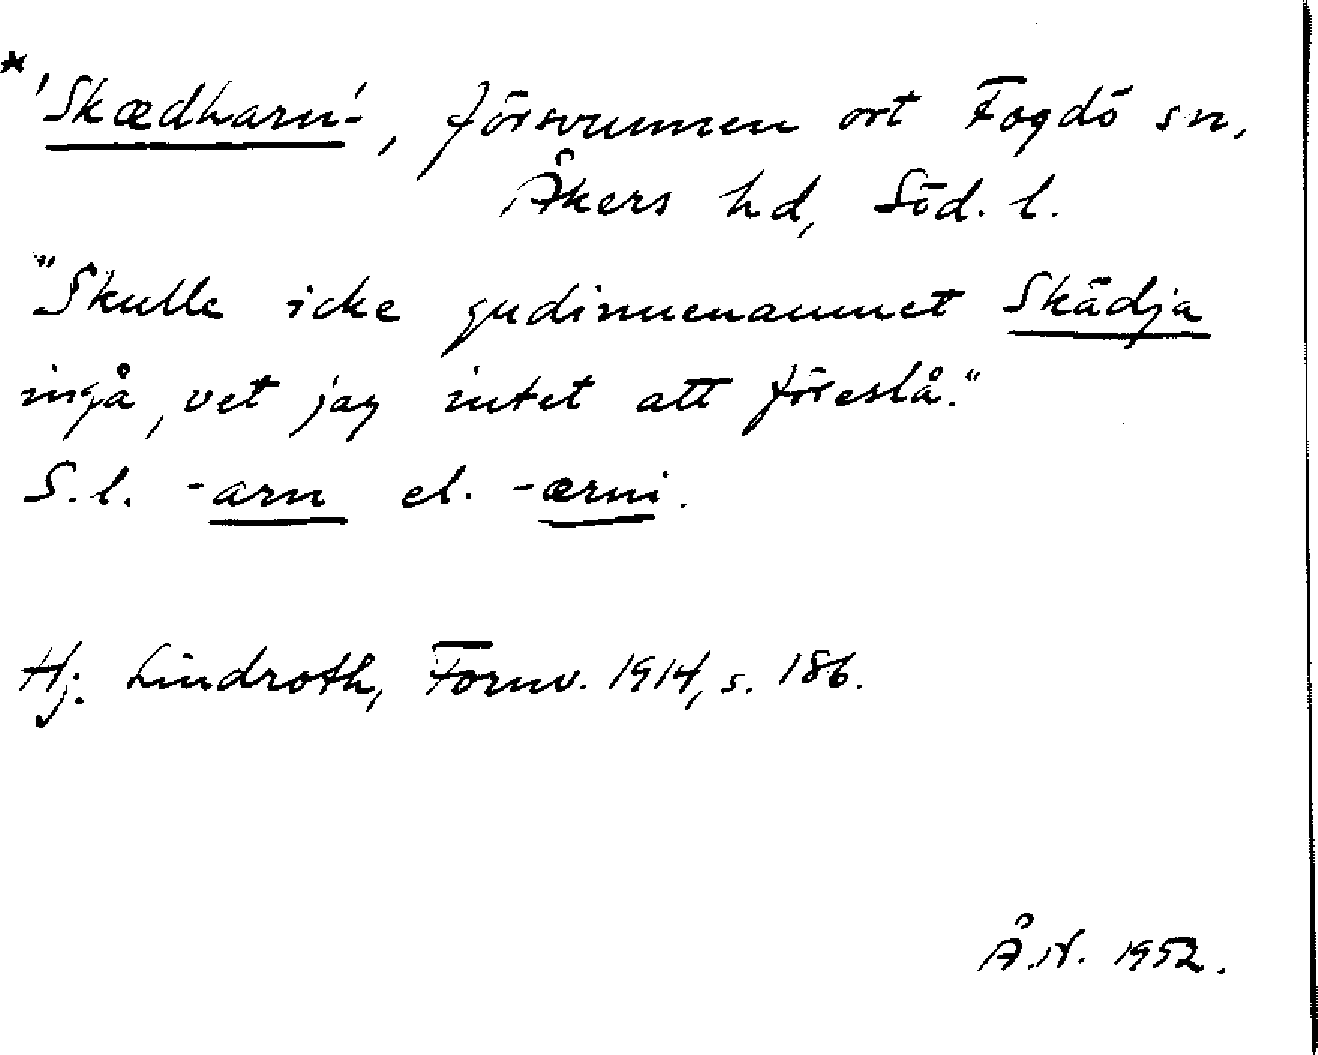 *'Skædharni-', försvunnen ort Fogdö sn,
Åkers hd, Söd. l.
"Skulle icke gudinnenamnet Skädja
ingå, vet jag intet att föreslå."
S.l. -arn el. -ærni.
Hj. Lindroth, Fornv. 1914, s. 186.
Å.N. 1952.